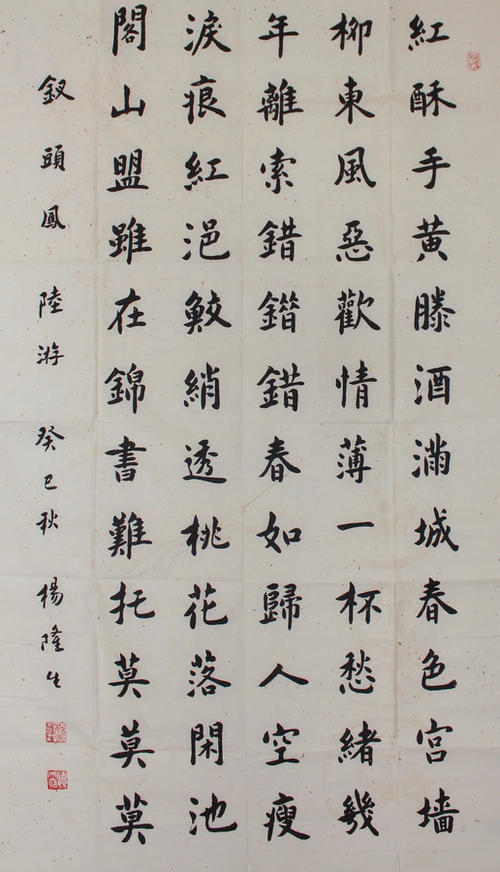 紅酥手黄滕酒滿城春色宮墻
柳東風惡歡情薄一杯愁緒幾
年離索錯錯錯春如歸人空瘦
淚痕紅浥鮫綃透桃花落閑池
閣山盟雖在錦書難托莫莫莫
釵頭鳳 陸游 癸巳秋 楊隆生